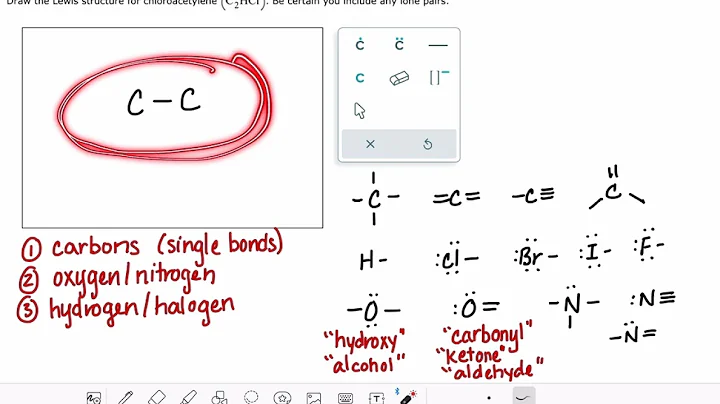 Draw the Lewis structure for chloroacetylene (C₂HCl). Be certain you include any lone pairs.
C – C
Ċ C̈ —
C [ ]⁻
-C- =C= -C≡ C
H- :C̤̈l- :B̤̈r- :Ï̤- :F̤̈-
-Ö̤- :Ö= -N̈- :N≡
-N̈=
① carbons (single bonds)
② oxygen/nitrogen
③ hydrogen/halogen
"hydroxy"
"alcohol"
"carbonyl"
"ketone"
"aldehyde"
T